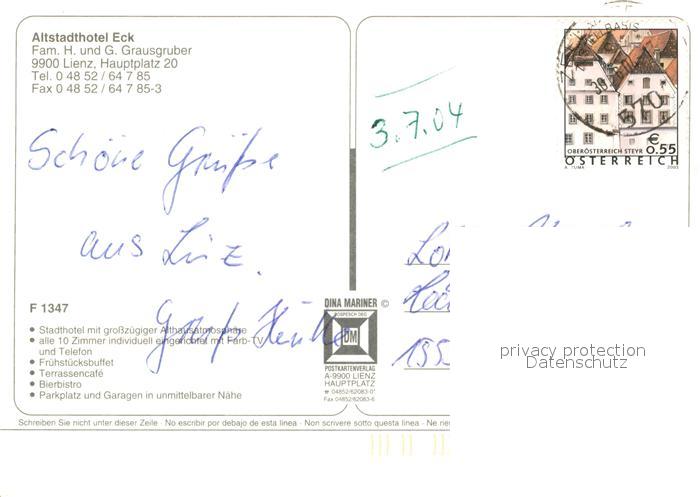 Altstadthotel Eck
Fam. H. und G. Grausgruber
9900 Lienz, Hauptplatz 20
Tel. 0 48 52 / 64 7 85
Fax 0 48 52 / 64 7 85-3
Schöne Grüße
aus Linz.
F 1347
• Stadthotel mit großzügiger Althausatmosphäre
• alle 10 Zimmer individuell eingerichtet mit Farb-TV
und Telefon
• Frühstücksbuffet
• Terrassencafé
• Bierbistro
• Parkplatz und Garagen in unmittelbarer Nähe
DINA MARINER ©
DM
POSTKARTENVERLAG
A-9900 LIENZ
HAUPTPLATZ
☎ 04852/62083-0*
Fax 04852/62083-6
3.7.04
570
€
0.55
OBERÖSTERREICH STEYR
ÖSTERREICH
A. TUMA 2003
privacy protection
Datenschutz
Schreiben Sie nicht unter dieser Zeile · No escribir por debajo de esta linea · Non scrivere sotto questa linea · Ne